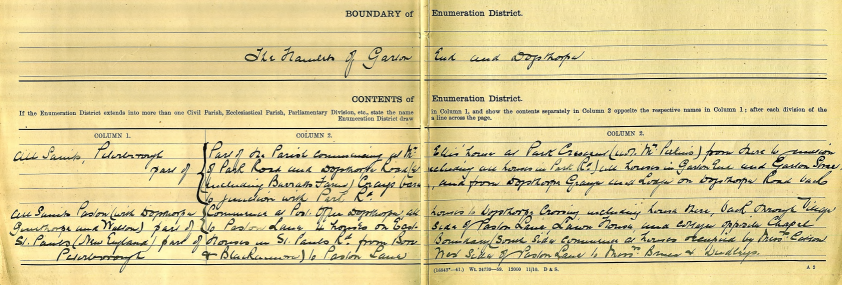 BOUNDARY of Enumeration District.
The Hamlets of Garton End and Dogsthorpe
CONTENTS of Enumeration District.
If the Enumeration District extends into more than one Civil Parish, Ecclesiastical Parish, Parliamentary Division, etc., state the name in Column 1, and show the contents separately in Column 2 opposite the respective names in Column 1; after each division of the
Enumeration District draw a line across the page.
COLUMN 1. COLUMN 2. COLUMN 2.
All Saints, Peterborough Part of the Parish commencing at Mr Ellis house at Park Crescent (not Mr Palms) from here to
part of of Park Road and Dogsthorpe Road including houses in Park Rd) all houses in Garton End and Garton
including Barracks Lane) Grays and from Dogsthorpe Grange and Lodge on Dogsthorpe Road back
to junction with Park Rd
All Saints Paston (with Dogsthorpe Commence at Post Office Dogsthorpe, all houses to Dogsthorpe Crossing including house there, back through Village
Gunthorpe and Walton) part of to Paston Lane houses on East side of Paston Lane, Lawn House, and cottage opposite Chapel
St. Pauls (New England) part of Houses in St. Pauls Rd from (South side commence at houses occupied by
Peterborough &) to Paston Lane West side of Paston Lane to Messrs &
12000 11/10. D & S. A 2